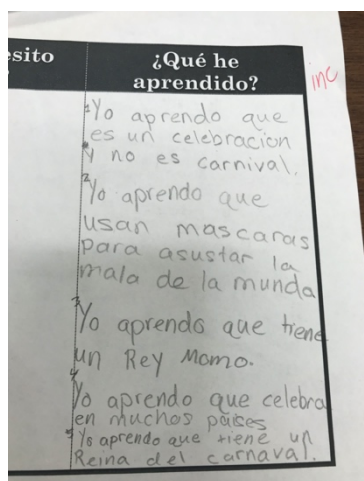 esito
¿Qué he
aprendido?
inc
1 Yo aprendo que
es un celebracion
y no es carnival.
2 Yo aprendo que
usan mascaras
para asustar la
mala de la munda
3 Yo aprendo que tiene
un Rey Momo.
4
Yo aprendo que celebra
en muchos países
5 Yo aprendo que tiene un
Reina del carnaval.